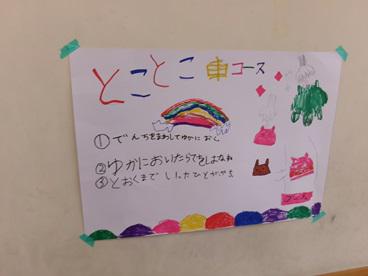 とことこ車コース
①でんちをまわしてゆかにおく
②ゆかにおいたらてをはなね
③とおくまでいったひとがかち